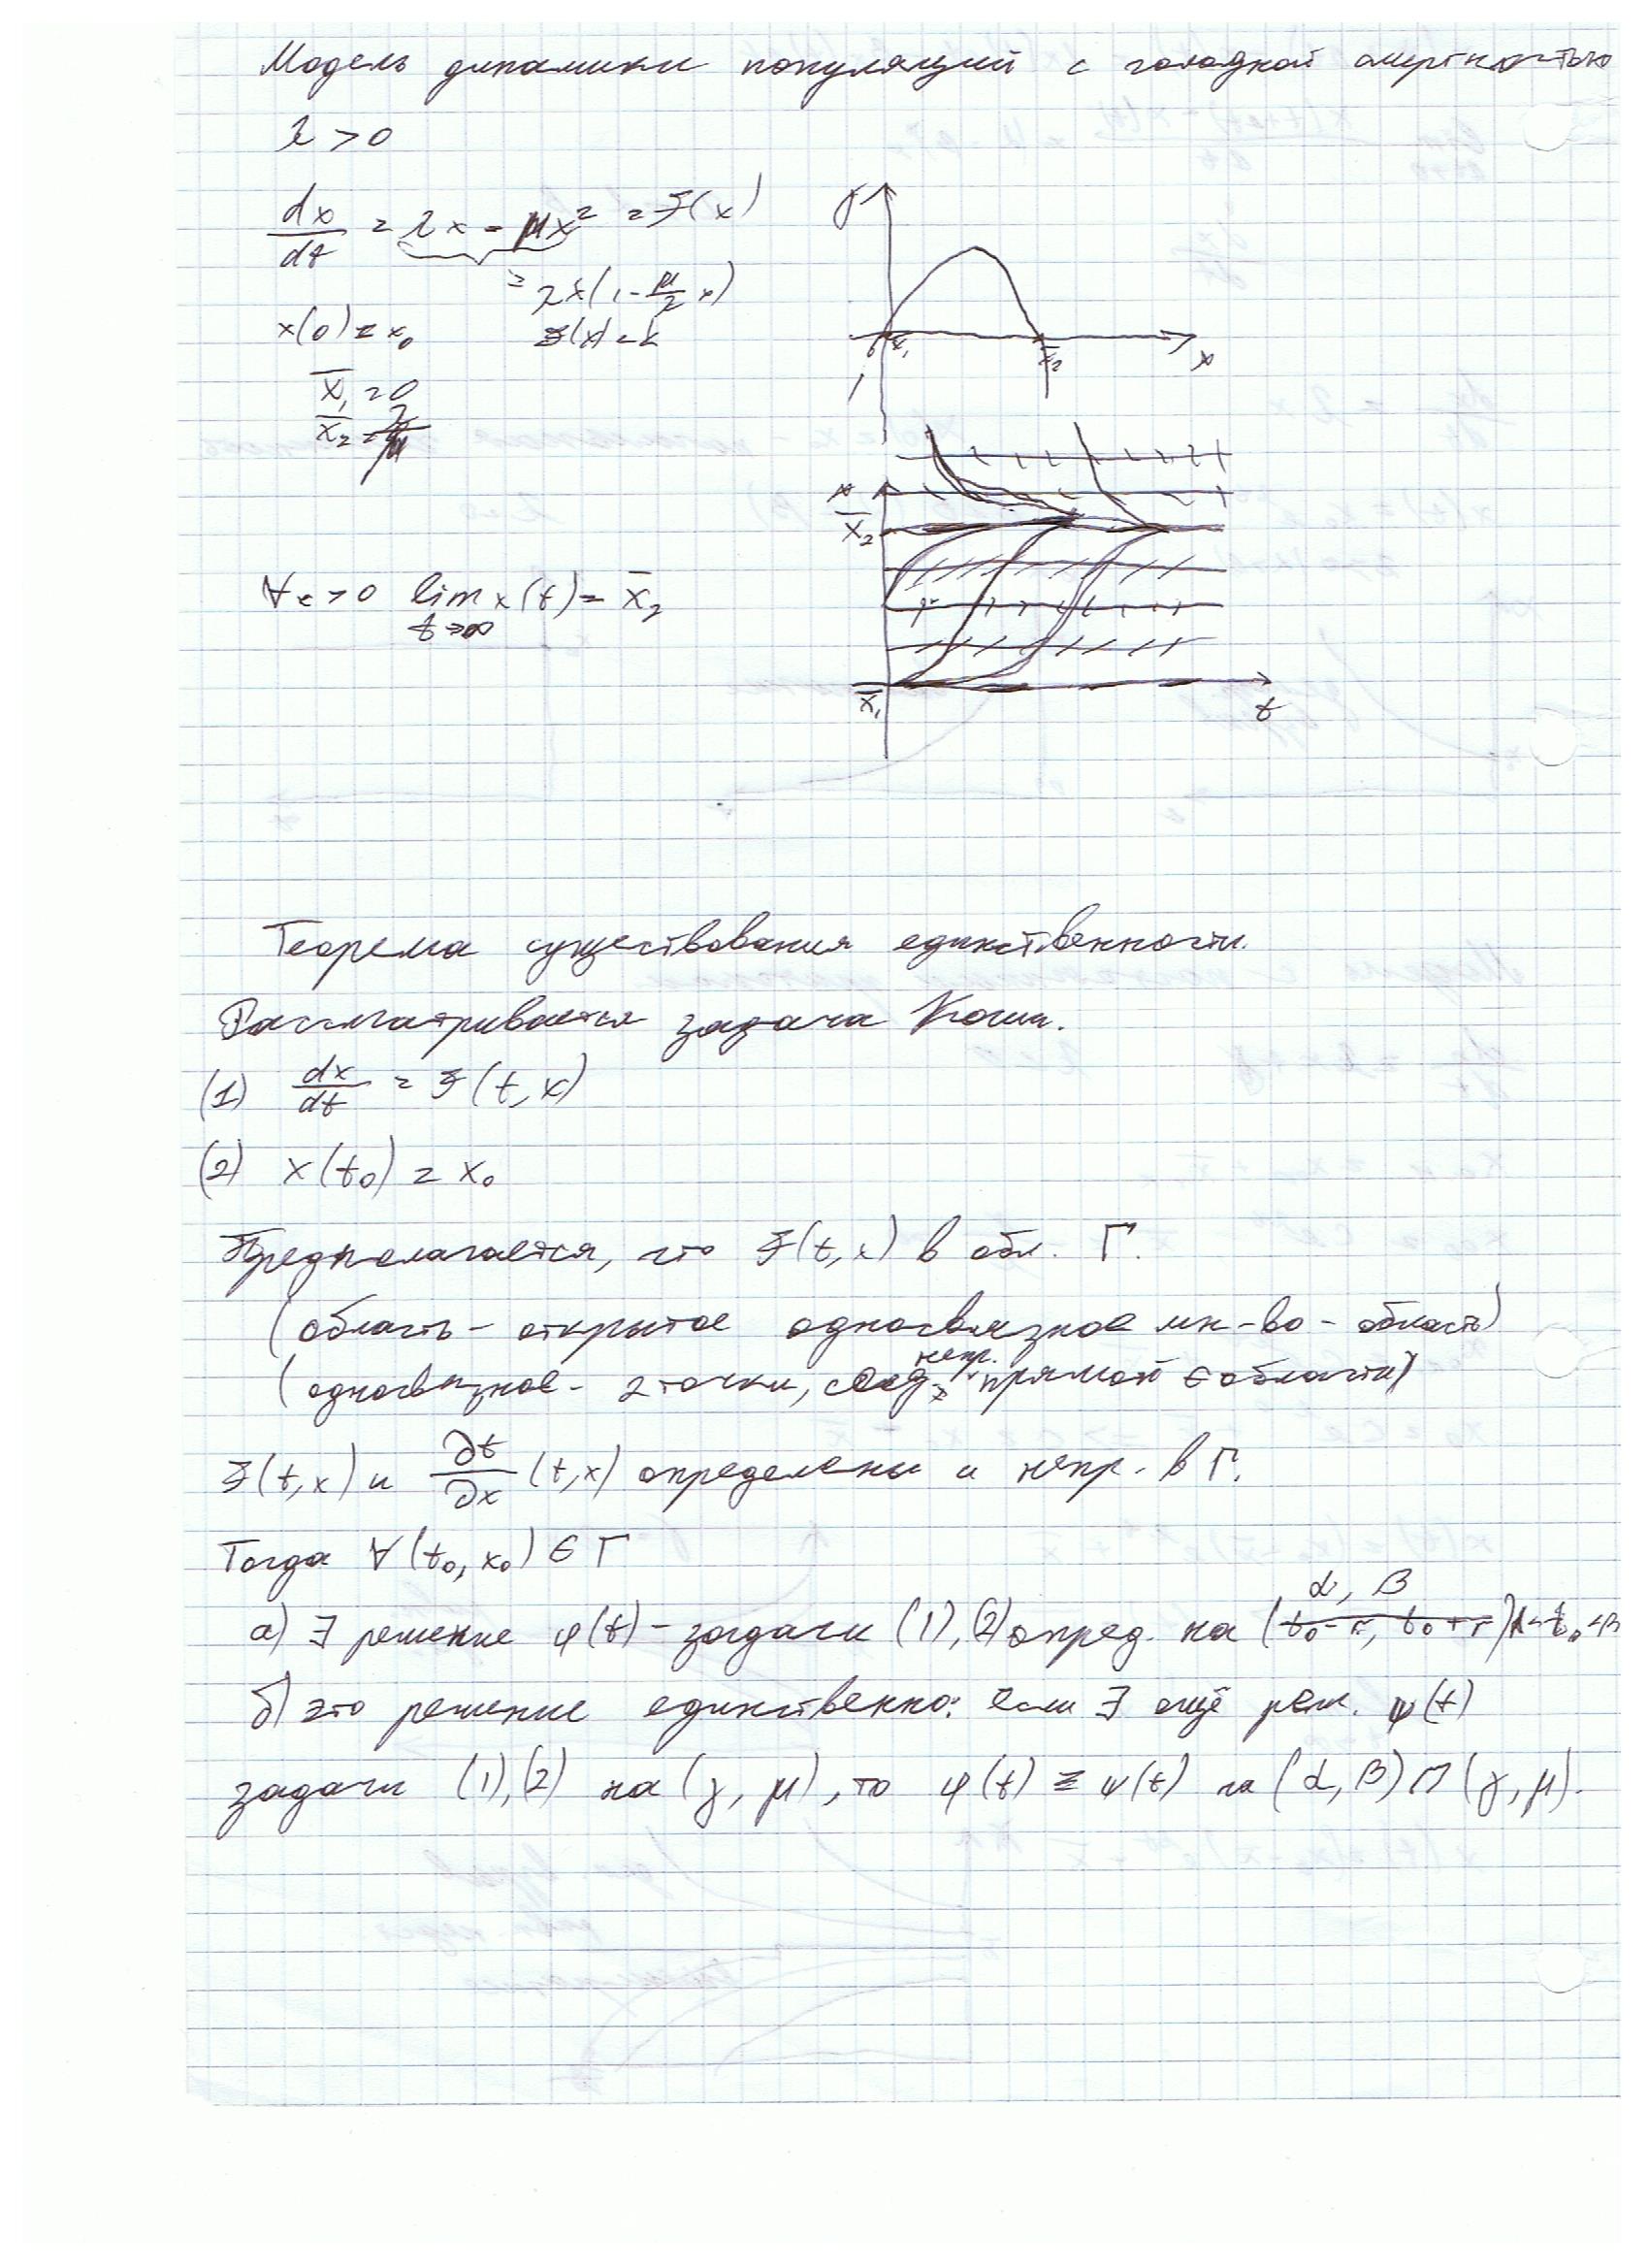 Модель динамики популяций с голодной смертностью
λ > 0
dx/dt = λx - μx² = f(x)
= λx(1 - μ/λ x)
x(0) = x₀ f(x) = k
x̄₁ = 0
x̄₂ = λ/μ
f
0 x̄₁ x̄₂ x
x
x̄₂
x̄₁ t
∀x > 0 lim x(t) = x̄₂
t→∞
Теорема существования единственности.
Рассматривается задача Коши.
(1) dx/dt = f(t, x)
(2) x(t₀) = x₀
Предполагается, что f(t, x) в обл. Г.
(область - открытое односвязное мн-во - область)
непр.
(односвязное - 2 точки, соед-х прямой ∈ области)
f(t, x) и ∂f/∂x (t, x) определены и непр. в Г.
Тогда ∀(t₀, x₀) ∈ Г
α, β
а) ∃ решение φ(t) - задачи (1), (2) опред. на (t₀-r, t₀+r) α<t₀<β
б) это решение единственно: если ∃ ещё реш. ψ(t)
задачи (1), (2) на (γ, μ), то φ(t) ≡ ψ(t) на (α, β) ∩ (γ, μ).